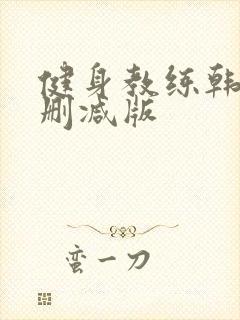 健身教练韩
删减版
蛮一刀